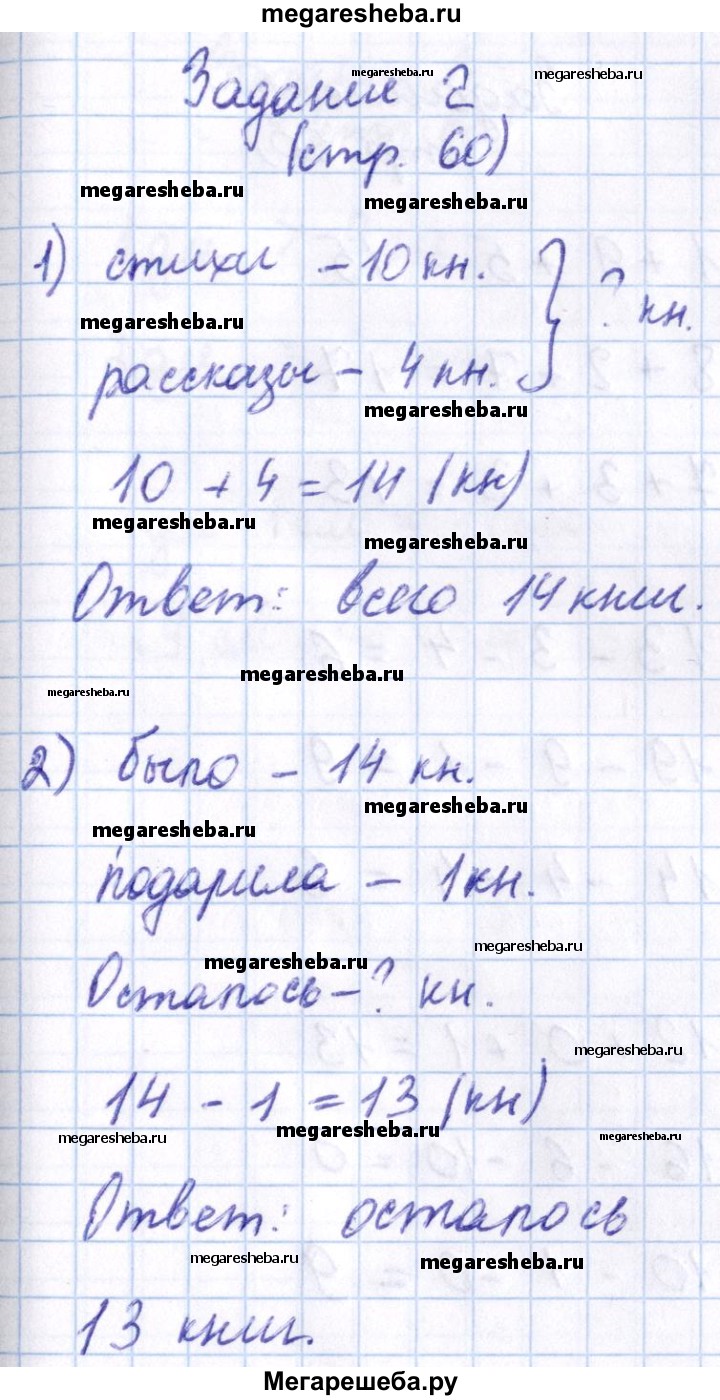 megaresheba.ru
Задание 2
megaresheba.ru
megaresheba.ru
(стр. 60)
megaresheba.ru
megaresheba.ru
1) стихи – 10 кн.
} ? кн.
megaresheba.ru
рассказы – 4 кн.
megaresheba.ru
10 + 4 = 14 (кн)
megaresheba.ru
megaresheba.ru
Ответ: всего 14 книг.
megaresheba.ru
megaresheba.ru
2) было – 14 кн.
megaresheba.ru
megaresheba.ru
подарила – 1 кн.
megaresheba.ru
megaresheba.ru
Осталось – ? кн.
megaresheba.ru
14 - 1 = 13 (кн)
megaresheba.ru
megaresheba.ru
megaresheba.ru
Ответ: осталось
megaresheba.ru
megaresheba.ru
13 книг.
Мегарешеба.ру